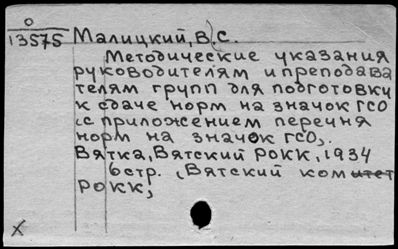 О
13575 Малицкий, В.С.
Методические указания
руководителям и преподава
телям групп для подготовки
к сдаче норм на значок ГСО
(с приложением перечня
норм на значок ГСО).
Вятка, Вятский РОКК, 1934
6стр. (Вятский комитет
РОКК)
х